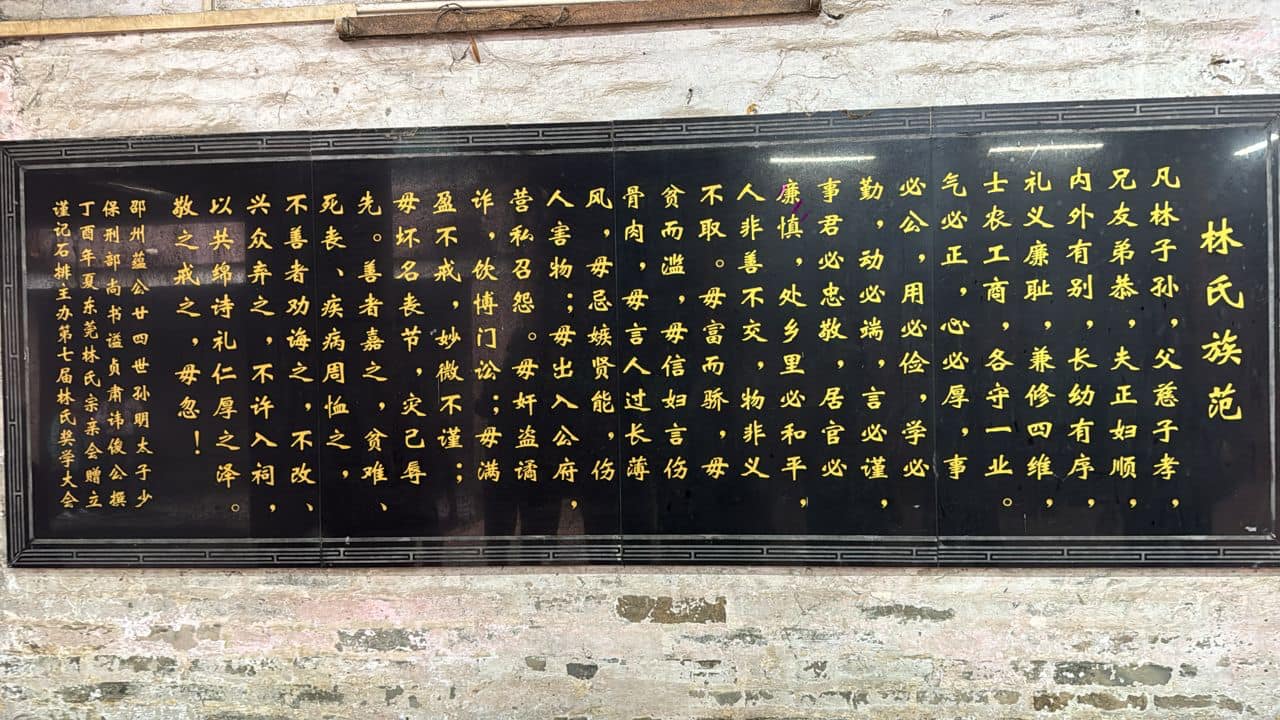 林氏族范
凡林子孙，父慈子孝，
兄友弟恭，夫正妇顺，
内外有别，长幼有序，
礼义廉耻，兼修四维，
士农工商，各守一业。
气必正，心必厚，事
必公，用必俭，学必
勤，动必端，言必谨，
事君必忠敬，居官必
廉慎，处乡里必和平，
人非善不交，物非义
不取。毋富而骄，毋
贫而滥，毋信妇言伤
骨肉，毋言人过长薄
风，毋忌嫉贤能，伤
人害物；毋出入公府，
营私召怨。毋奸盗谲
诈，饮博门讼；毋满
盈不戒，妙微不谨；
毋坏名丧节，灾己辱
先。善者嘉之，贫难、
死丧、疾病周恤之，
不善者劝诲之，不改、
兴众弃之，不许入祠，
以共绵诗礼仁厚之泽。
敬之戒之，毋忽！
邵州蕴公廿四世孙明太子少
保刑部尚书谥贞肃讳俊公撰
丁酉年夏东莞林氏宗亲会赠立
谨记石排主办第七届林氏奖学大会